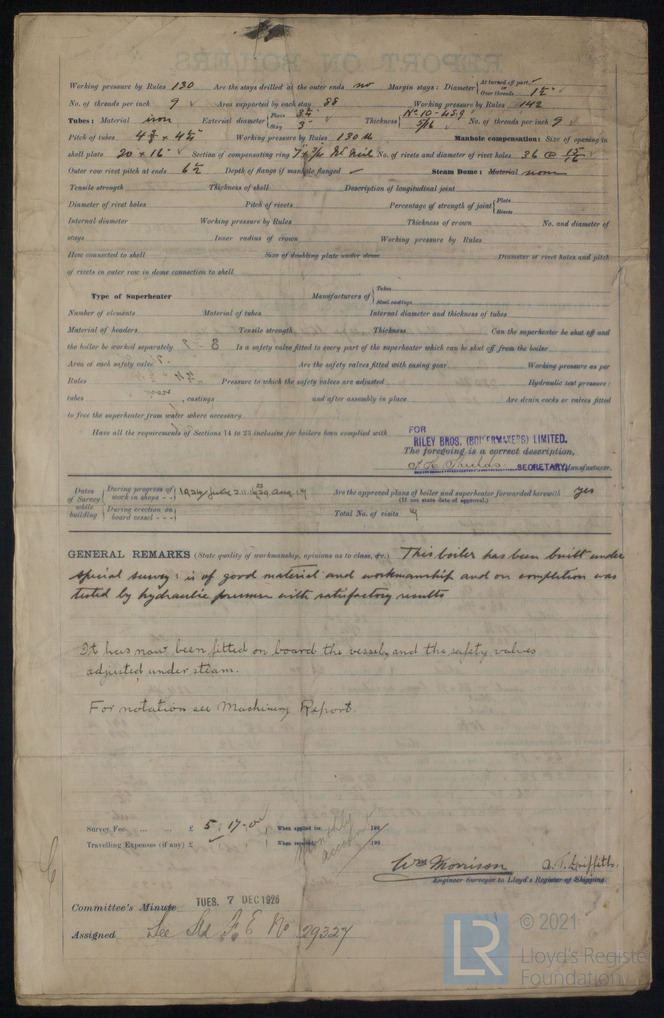 REPORT ON BOILERS
Working pressure by Rules 130 Are the stays drilled at the outer ends no Margin stays: Diameter { At turned off part or Over threads
No. of threads per inch 9 Area supported by each stay 88 Working pressure by Rules 142
Tubes: Material iron External diameter { Plain 3¼ Stay 3 Thickness { 5/16 No. of threads per inch 9
Pitch of tubes Working pressure by Rules 130 lb Manhole compensation: Size of opening in
shell plate 20 × 16 Section of compensating ring No. of rivets and diameter of rivet holes 36 @ 15/16
Outer row rivet pitch at ends 6½ Depth of flange if manhole flanged Steam Dome: Material none
Tensile strength Thickness of shell Description of longitudinal joint
Diameter of rivet holes Pitch of rivets Percentage of strength of joint { Plate Rivets
Internal diameter Working pressure by Rules Thickness of crown No. and diameter of
stays Inner radius of crown Working pressure by Rules
How connected to shell Size of doubling plate under dome Diameter of rivet holes and pitch
of rivets in outer row in dome connection to shell
Type of Superheater Manufacturers of { Tubes Steel castings
Number of elements Material of tubes Internal diameter and thickness of tubes
Material of headers Tensile strength Thickness Can the superheater be shut off and
the boiler be worked separately Is a safety valve fitted to every part of the superheater which can be shut off from the boiler
Area of each safety valve Are the safety valves fitted with easing gear Working pressure as per
Rules Pressure to which the safety valves are adjusted Hydraulic test pressure:
tubes , castings and after assembly in place Are drain cocks or valves fitted
to free the superheater from water where necessary
Have all the requirements of Sections 14 to 23 inclusive for boilers been complied with
FOR
RILEY BROS. (BOILERMAKERS) LIMITED.
The foregoing is a correct description,
SECRETARY. Manufacturer.
Dates of Survey while building { During progress of work in shops - - Are the approved plans of boiler and superheater forwarded herewith yes
(If not state date of approval.)
During erection on board vessel - - - Total No. of visits 4
GENERAL REMARKS (State quality of workmanship, opinions as to class, &c.) This boiler has been built under
special survey: is of good material and workmanship and on completion was
tested by hydraulic pressure with satisfactory results
It has now been fitted on board the vessel, and the safety valves
adjusted under steam.
For notation see Machinery Report.
Survey Fee ... ... £ 5 : 17 - 0 When applied for, 192
Travelling Expenses (if any) £ When received, 192
Monthly account
Wm Morrison A. T. Griffiths.
Engineer Surveyor to Lloyd's Register of Shipping.
Committee's Minute TUES. 7 DEC 1926
Assigned See F.E. No 29327
© 2021
LR Lloyd's Register
Foundation